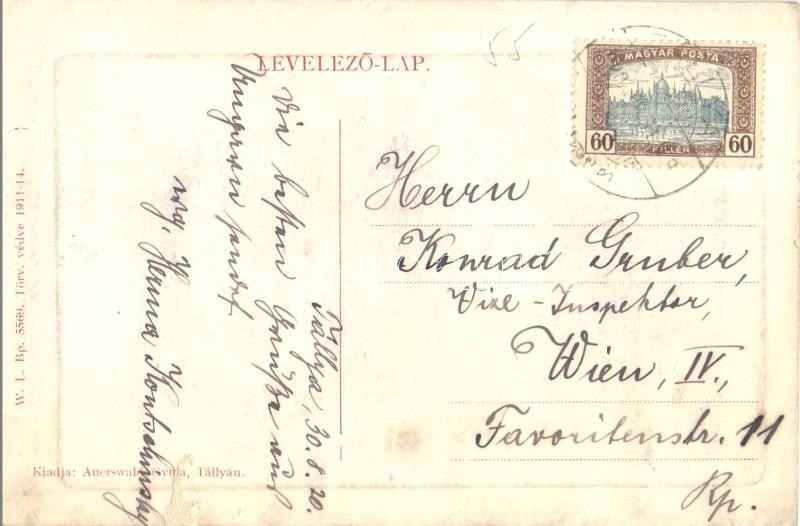 55
LEVELEZŐ-LAP.
MAGYAR POSTA
60 FILLÉR 60
Tállya, 30.8.20.
Die besten Grüße aus
Ungarn sendet
Herma
Herrn
Konrad Gruber,
Vize-Inspektor,
Wien, IV.,
Favoritenstr. 11
Rp.
W. L. Bp. 5569. Törv. védve 1911-14.
Kiadja: Auerswald Gyula, Tállyán.